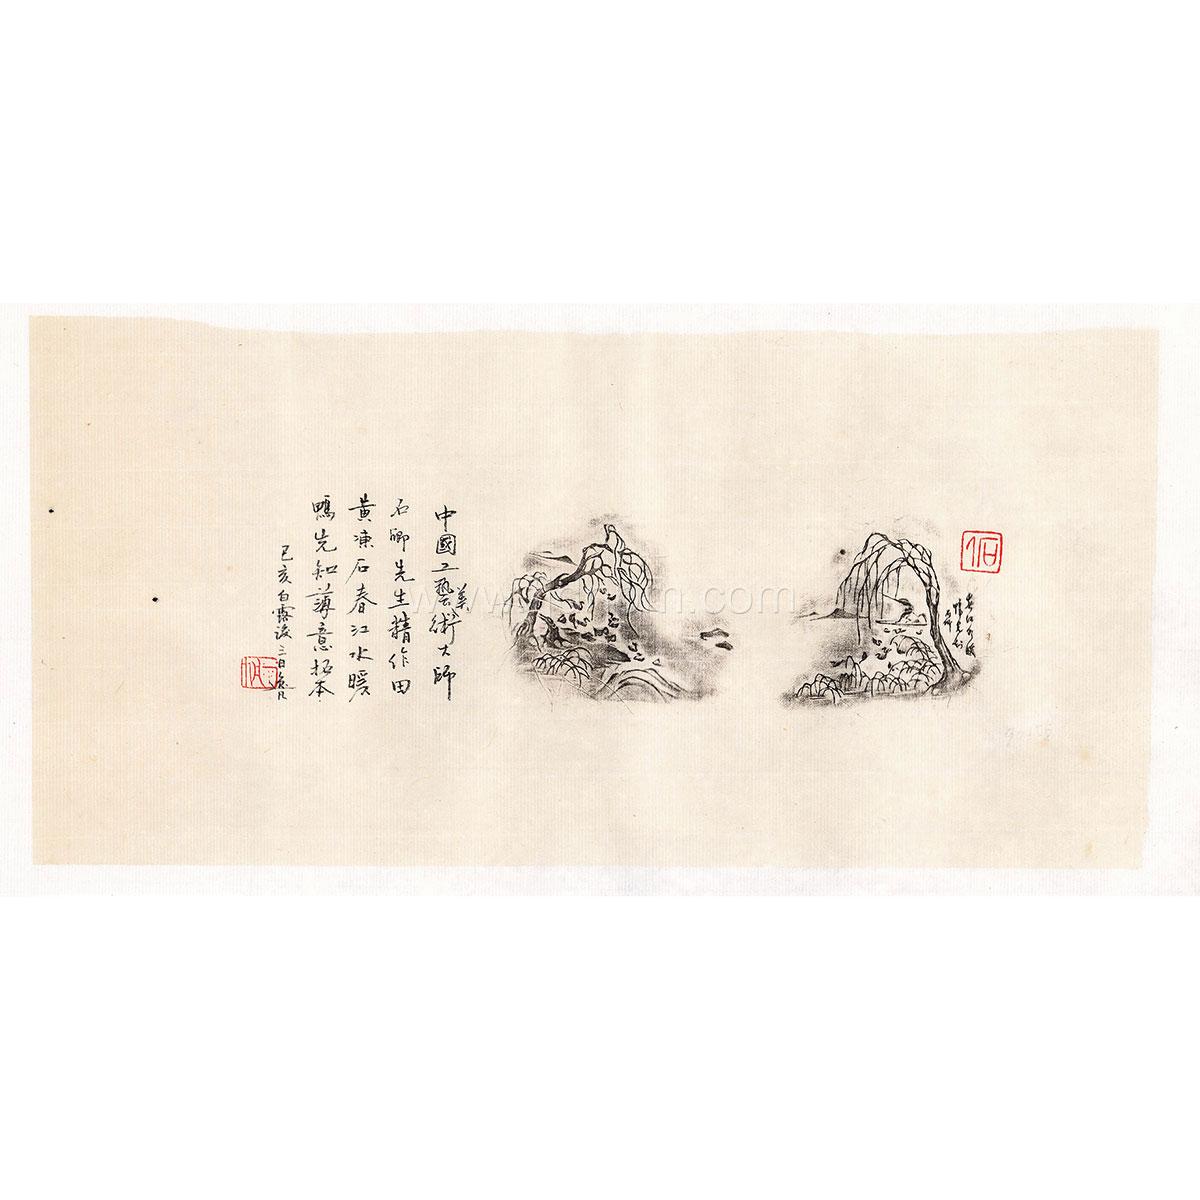 中國工藝術大師
美
石卿先生精作田
黃凍石春江水暖
鴨先知薄意拓本
己亥白露後三日